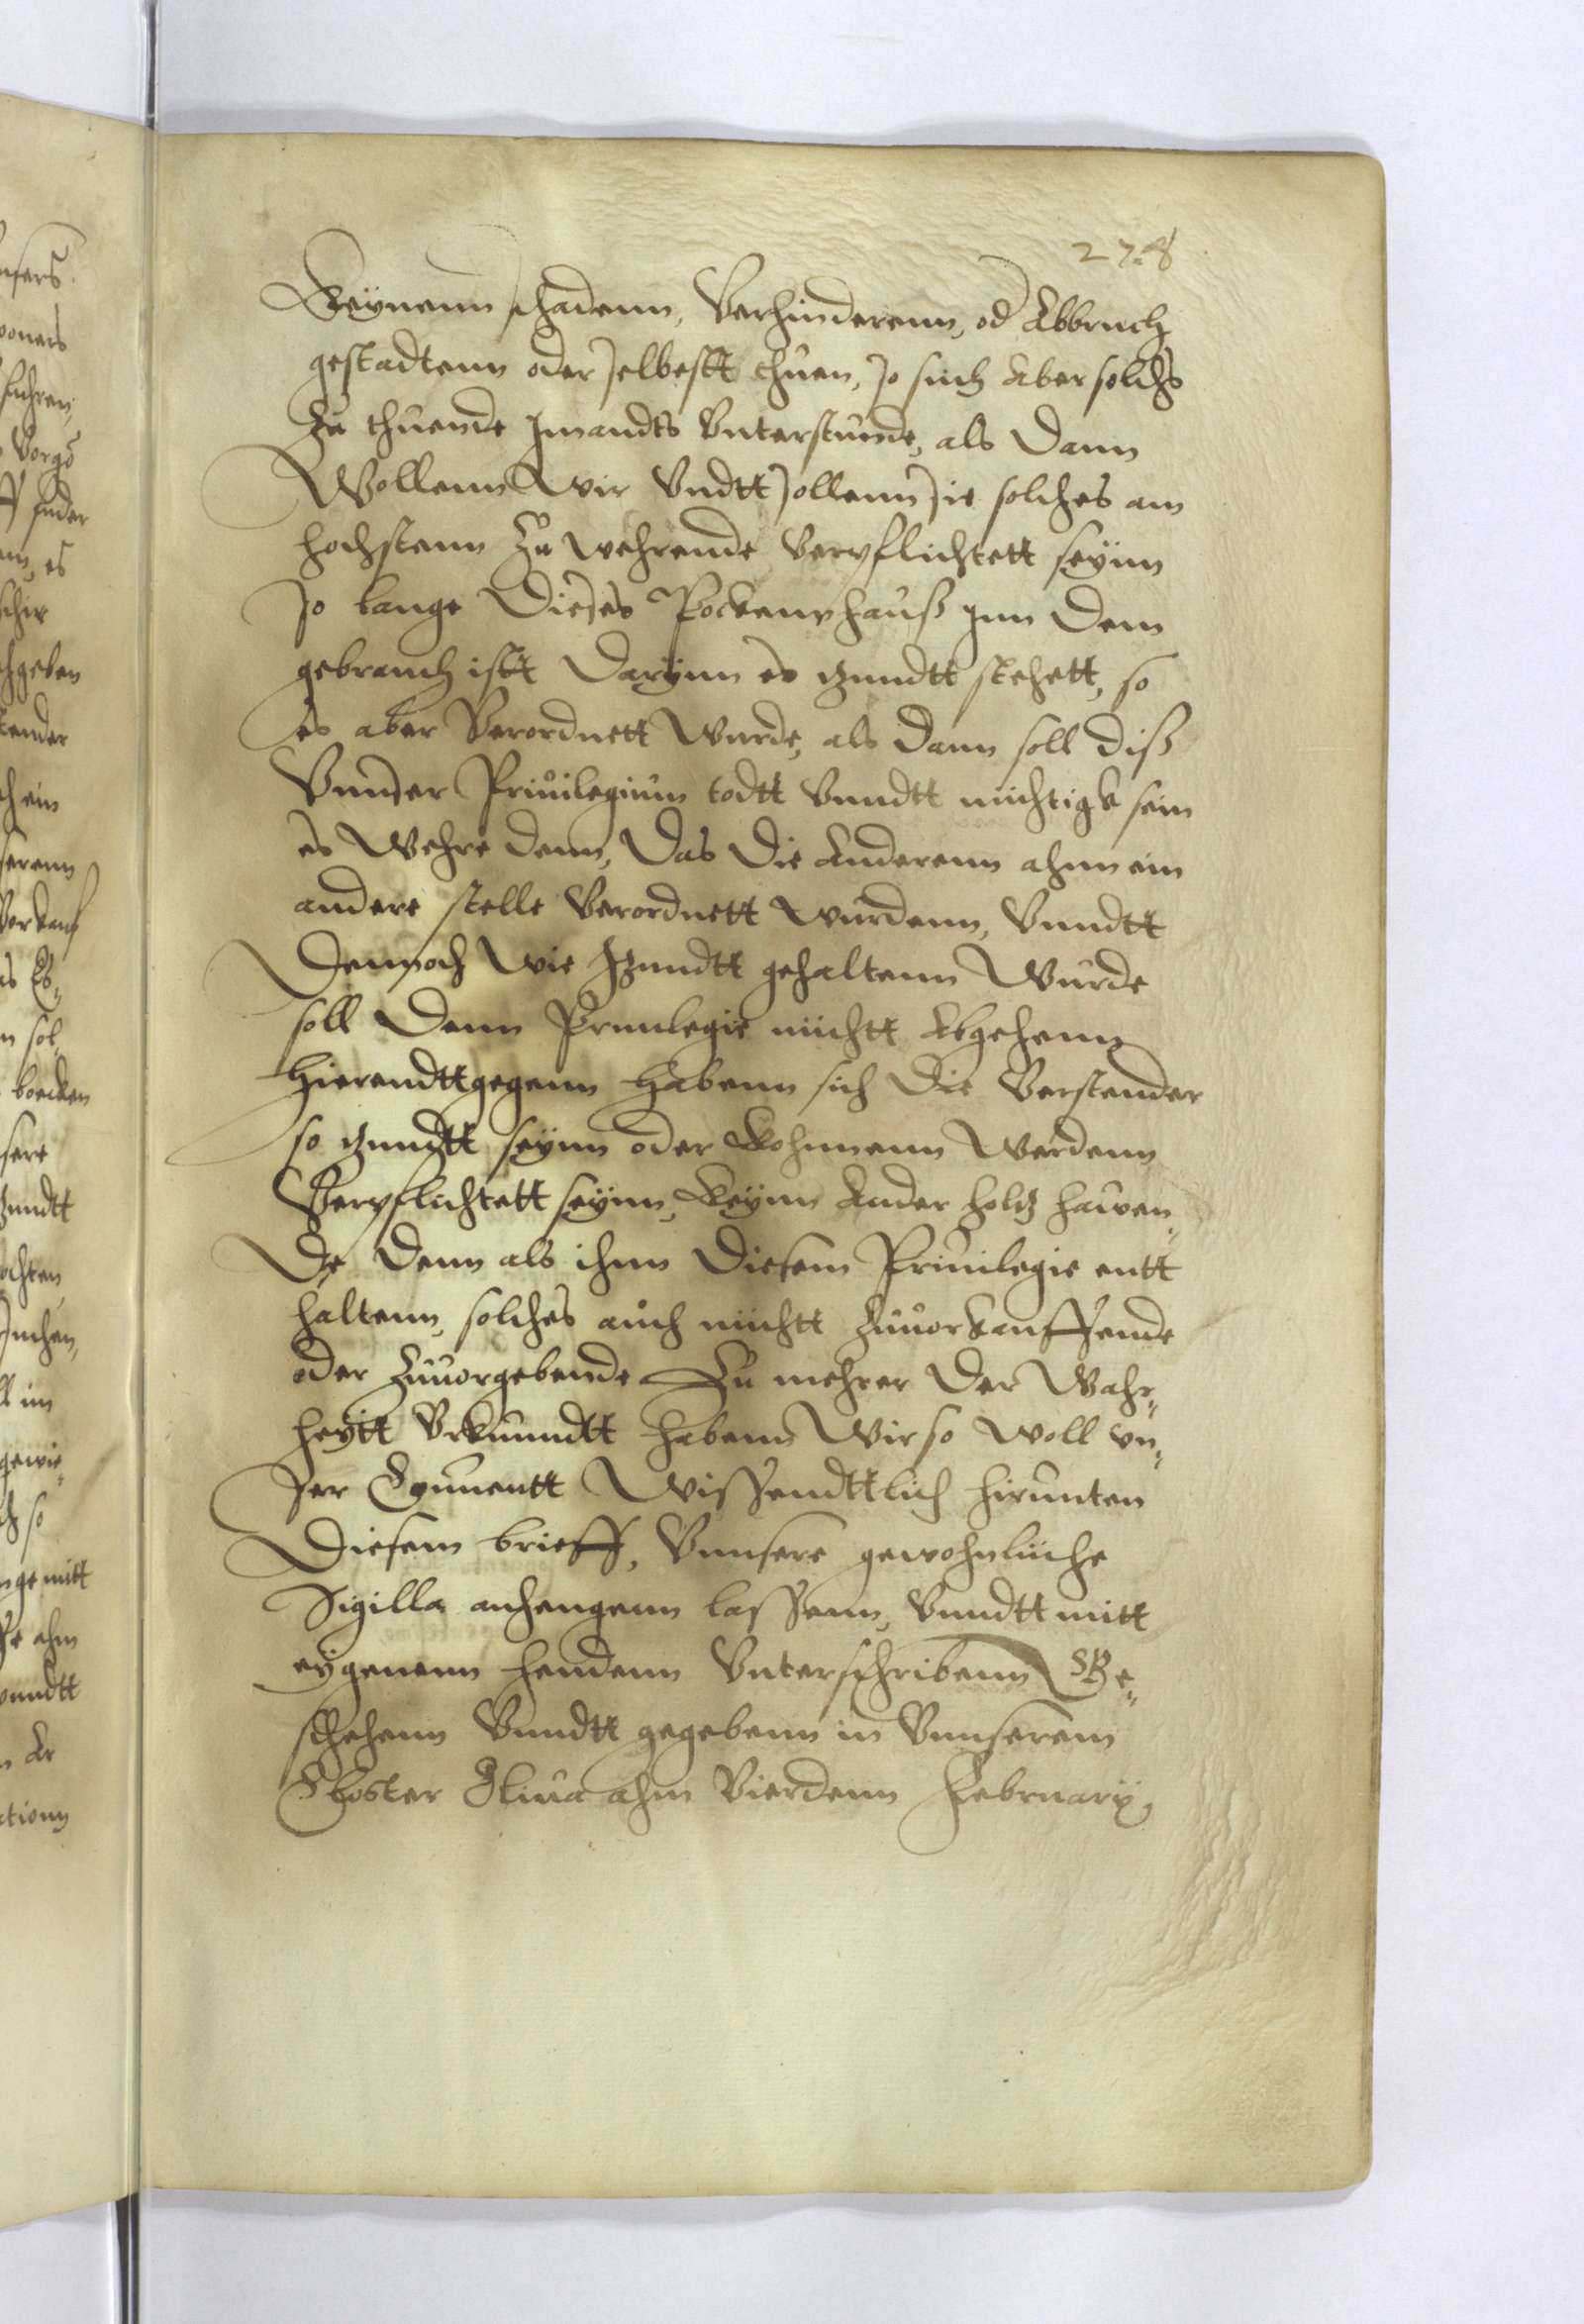 278
Keÿnenn schadenn, Verhinderenn, od Abbruch
gestadtenn oder selbestt thuen, so sich Aber solchs
Zu thuende Jmandts Vnterstunde, als dann
Wollenn Wir Vndtt sollenn sie solches am
hochstenn Zu wehrende Verpflichtett seÿnn
so lange Dieses Pockennhauß Jnn dem
gebrauch istt Darÿnn es itzundtt stehett, so
es aber Verordnett Wurde, als dann soll diß
Vnnser Priuilegium todtt Vnndtt nichtigk sein
es Wehre denn, Das die Anderenn ahnn ein
andere stelle Verordnett wurdenn, Vnndtt
Dennoch wie Jtzundtt gehaltenn Wurde
soll Denn Priuilegie nichtt Abgehenn
Hierendttgegenn habenn sich die Verstender
so itzundtt seÿnn oder Kohmenn Werdenn
Verpflichtett seÿnn, Keÿnn Ander holtz hawen,
De denn als ihnn Diesem Priuilegie entt
haltenn, solches auch nichtt Zuuorkauffende
oder Zuuorgebende Zu mehrer der Wahr,
heÿtt Vrkundtt habenn Wir so woll vn,
ser Conuentt Wissendttlich hirunten
Diesem brieff, Vnnsere gewohnliche
Sigilla anhengenn lassenn, Vnndtt mitt
eÿgenenn hendenn Vnterschribenn Ge,
schehenn Vnndtt gegebenn in Vnnserem
Closter Oliua ahm Vierdenn Februarÿ,